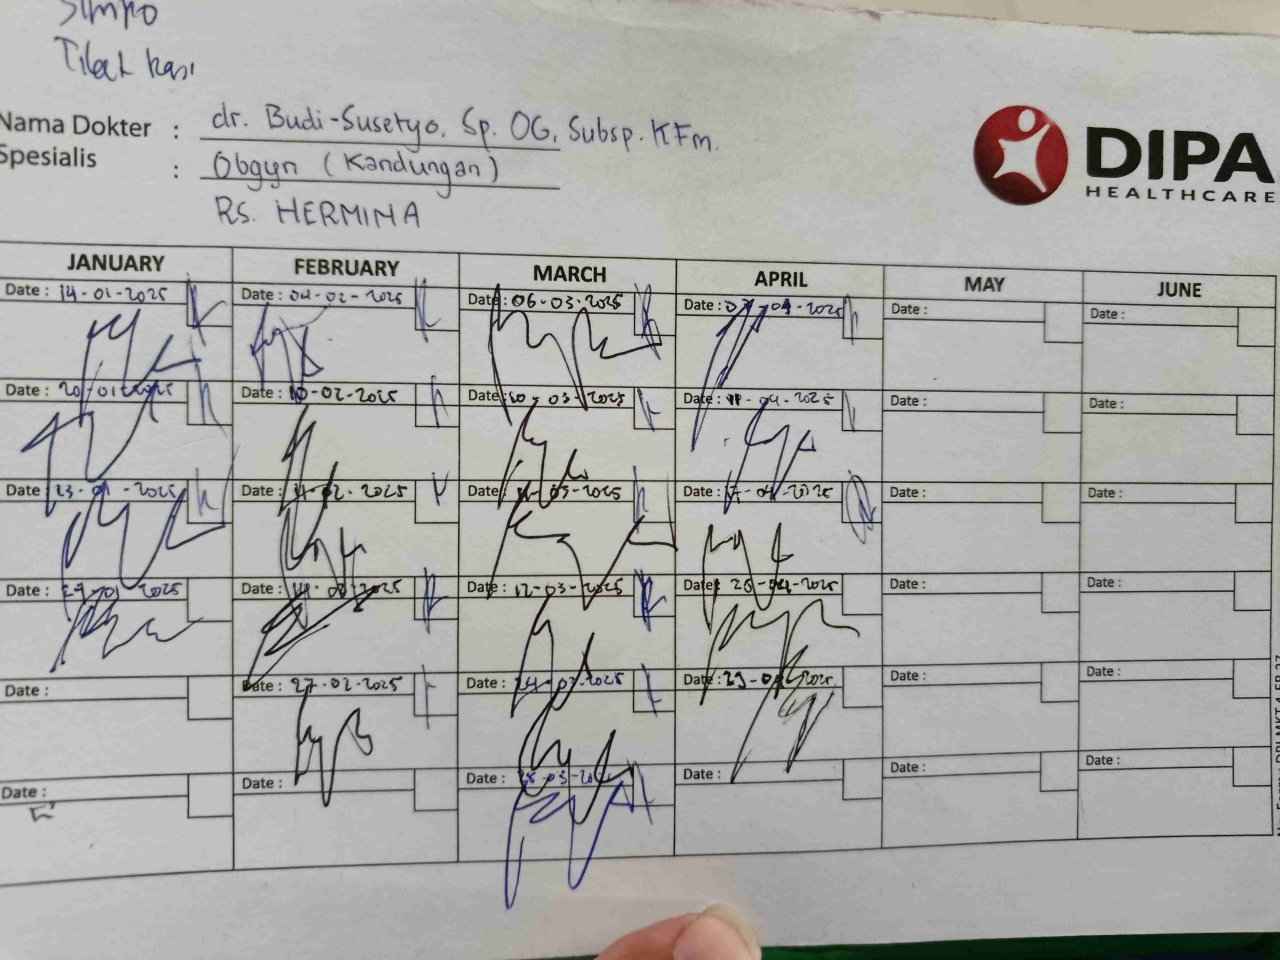 Simpo
Tilat kasi
Nama Dokter : dr. Budi-Susetyo, Sp. OG, Subsp. KFm.
Spesialis : Obgyn (Kandungan)
RS. HERMINA
DIPA
HEALTHCARE
JANUARY FEBRUARY MARCH APRIL MAY JUNE
Date : 14-01-2025 Date : 04-02-2025 Date : 06-03-2025 Date : 07-04-2025 Date : Date :
Date : 20-01-2025 Date : 10-02-2025 Date : 10-03-2025 Date : 11-04-2025 Date : Date :
Date : 23-01-2025 Date : 11-02-2025 Date : -03-2025 Date : 17-04-2025 Date : Date :
Date : 29-01-2025 Date : 2025 Date : 12-03-2025 Date : 26-04-2025 Date : Date :
Date : Date : 27-02-2025 Date : 24-03-2025 Date : 29-04-2025 Date : Date :
Date : Date : Date : 28-03-2025 Date : Date : Date :